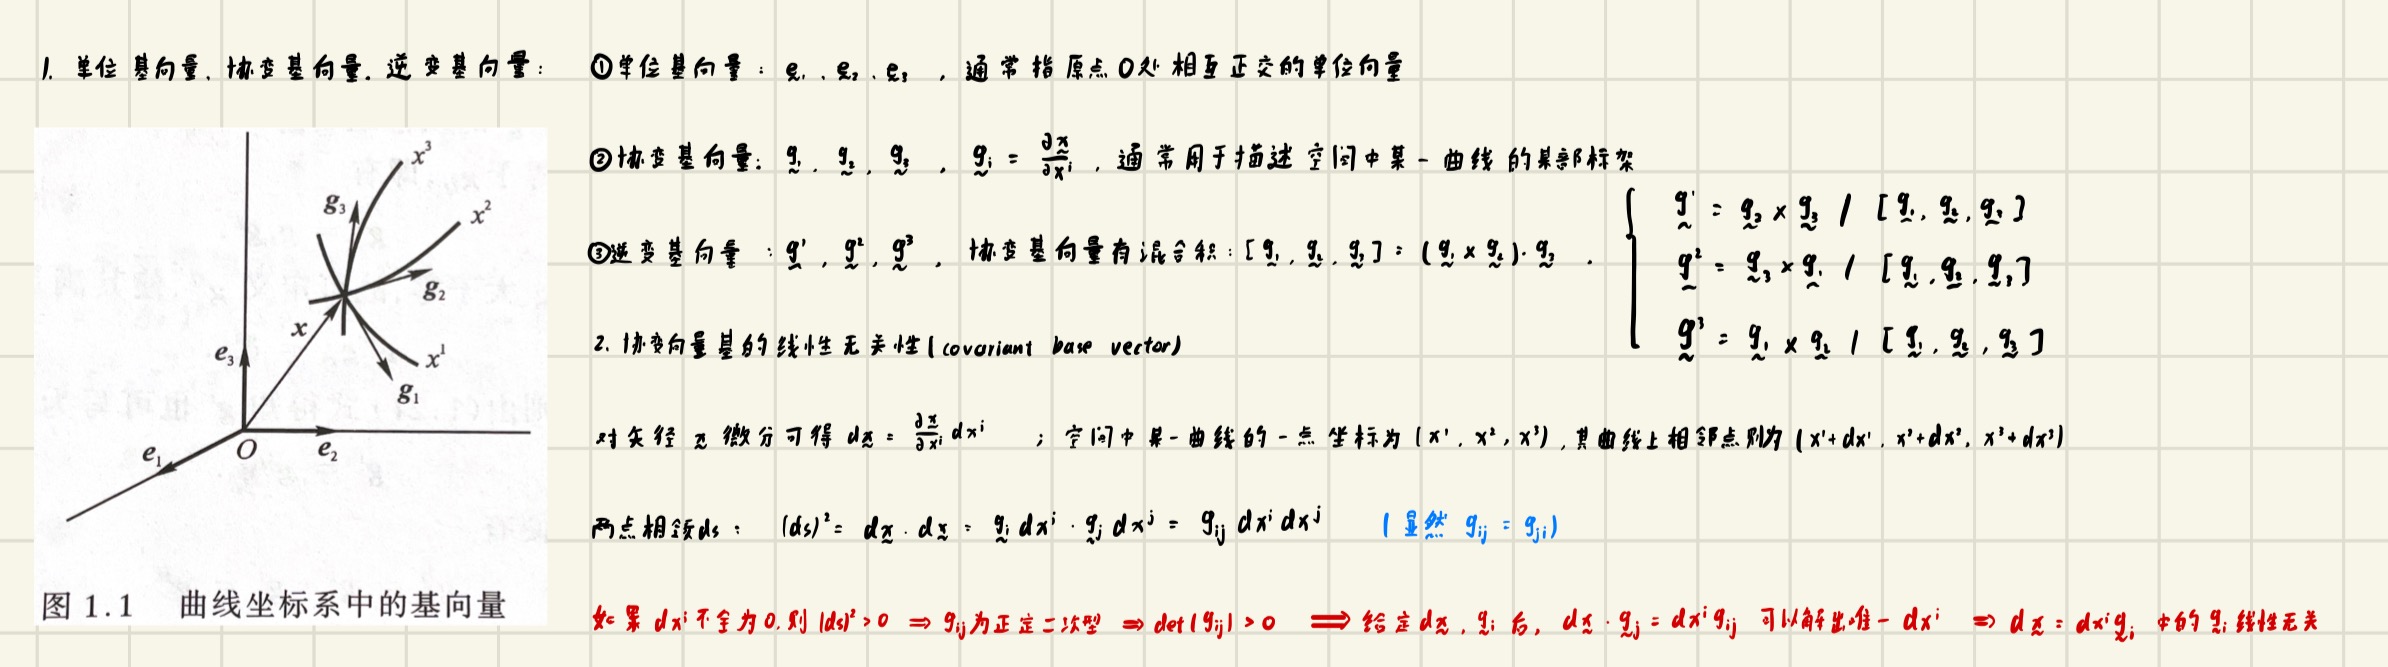 1. 单位基向量、协变基向量、逆变基向量：
①单位基向量：e₁、e₂、e₃，通常指原点O处相互正交的单位向量
②协变基向量：g₁、g₂、g₃，gᵢ = ∂x/∂xⁱ，通常用于描述空间中某一曲线的某部标架
③逆变基向量：g¹，g²，g³，协变基向量有混合积：[g₁，g₂，g₃] = (g₁ × g₂)·g₃，
g¹ = g₂ × g₃ / [g₁，g₂，g₃]
g² = g₃ × g₁ / [g₁，g₂，g₃]
g³ = g₁ × g₂ / [g₁，g₂，g₃]
x³
x²
g₃
g₂
x
x¹
g₁
e₃
O
e₂
e₁
图 1.1 曲线坐标系中的基向量
2. 协变向量基的线性无关性(covariant base vector)
对矢径 x 微分可得 dx = ∂x/∂xⁱ dxⁱ ；空间中某一曲线的一点坐标为 (x¹，x²，x³)，其曲线上相邻点则为 (x¹+dx¹，x²+dx²，x³+dx³)
两点相ds：(ds)² = dx · dx = gᵢ dxⁱ · gⱼ dxʲ = gᵢⱼ dxⁱ dxʲ (显然 gᵢⱼ = gⱼᵢ)
如果 dxⁱ 不全为0，则 (ds)² > 0 ⇒ gᵢⱼ为正定二次型 ⇒ det(gᵢⱼ) > 0 ⟹ 给定dx，gᵢ 后，dx · gⱼ = dxⁱ gᵢⱼ 可以解出唯一 dxⁱ ⇒ dx = dxⁱ gᵢ 中的 gᵢ 线性无关